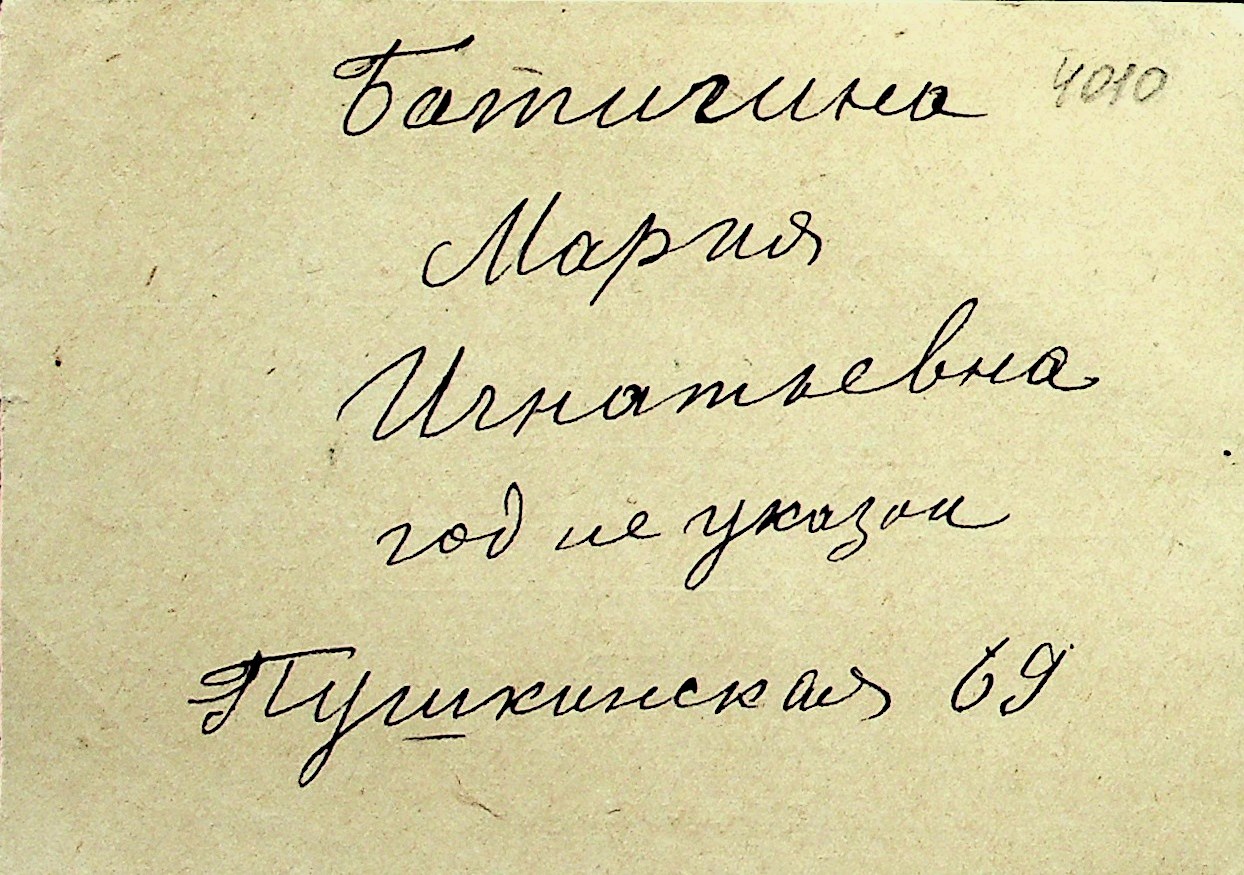 Батигина 4010
Мария
Игнатьевна
год не указан
Пушкинская 69